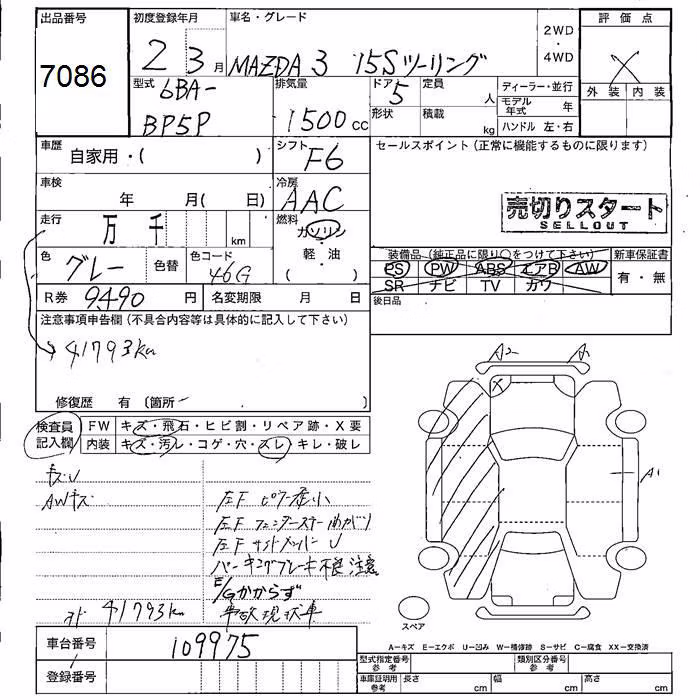 出品番号
7086
初度登録年月
2 3月
車名・グレード
MAZDA 3 15Sツーリング
2WD
・
4WD
評価点
X
外装 内装
型式
6BA-
BP5P
排気量
1500cc
ドア
5
形状
定員
人
積載
kg
ディーラー・並行
モデル年式 年
ハンドル 左・右
車歴
自家用・( )
シフト
F6
セールスポイント(正常に機能するものに限ります)
車検
年 月( 日)
冷房
AAC
売切りスタート
SELLOUT
走行
万 千 km
燃料
ガソリン
・
軽・油
( )
色
グレー
色替
色コード
46G
装備品(純正品に限り○をつけて下さい)
PS PW ABS エアB AW
SR ナビ TV カワ
新車保証書
有・無
後日品
R券 9490 円
名変期限 月 日
注意事項申告欄(不具合内容等は具体的に記入して下さい)
41793km
修復歴 有(箇所 )
検査員
記入欄
FW キズ・飛石・ヒビ割・リペア跡・X要
内装 キズ・汚レ・コゲ・穴・スレ・キレ・破レ
AWキズ
左F ピラー歪小
左F フェンダーステー曲がり
左F サイドメンバー U
パーキングブレーキ不良注意
E/Gかからず
事故現状車
41793km
A2
A
X
A1
スペア
A-キズ E-エクボ U-凹み W-補修跡 S-サビ C-腐食 XX-交換済
車台番号
109975
登録番号
型式指定番号
参考
類別区分番号
参考
車庫証明用
参考
長さ cm
幅 cm
高さ cm